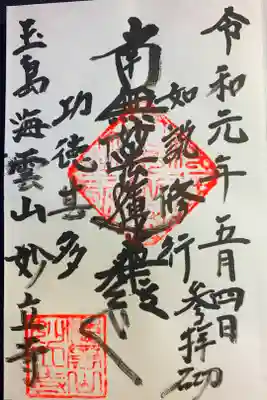 令和元年五月四日
参拝砌
如説修行
南無妙法蓮華経
功徳甚多
玉島海雲山妙立寺